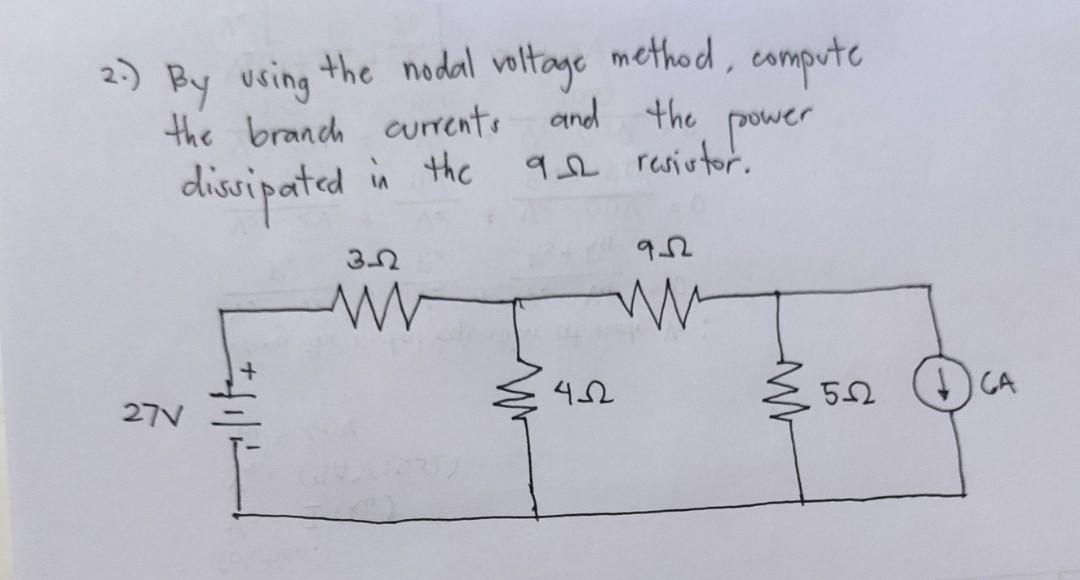 2.) By using the nodal voltage method, compute
the branch currents and the power
dissipated in the 9Ω resistor.
3Ω 9Ω
+
27V 4Ω 5Ω 6A
-